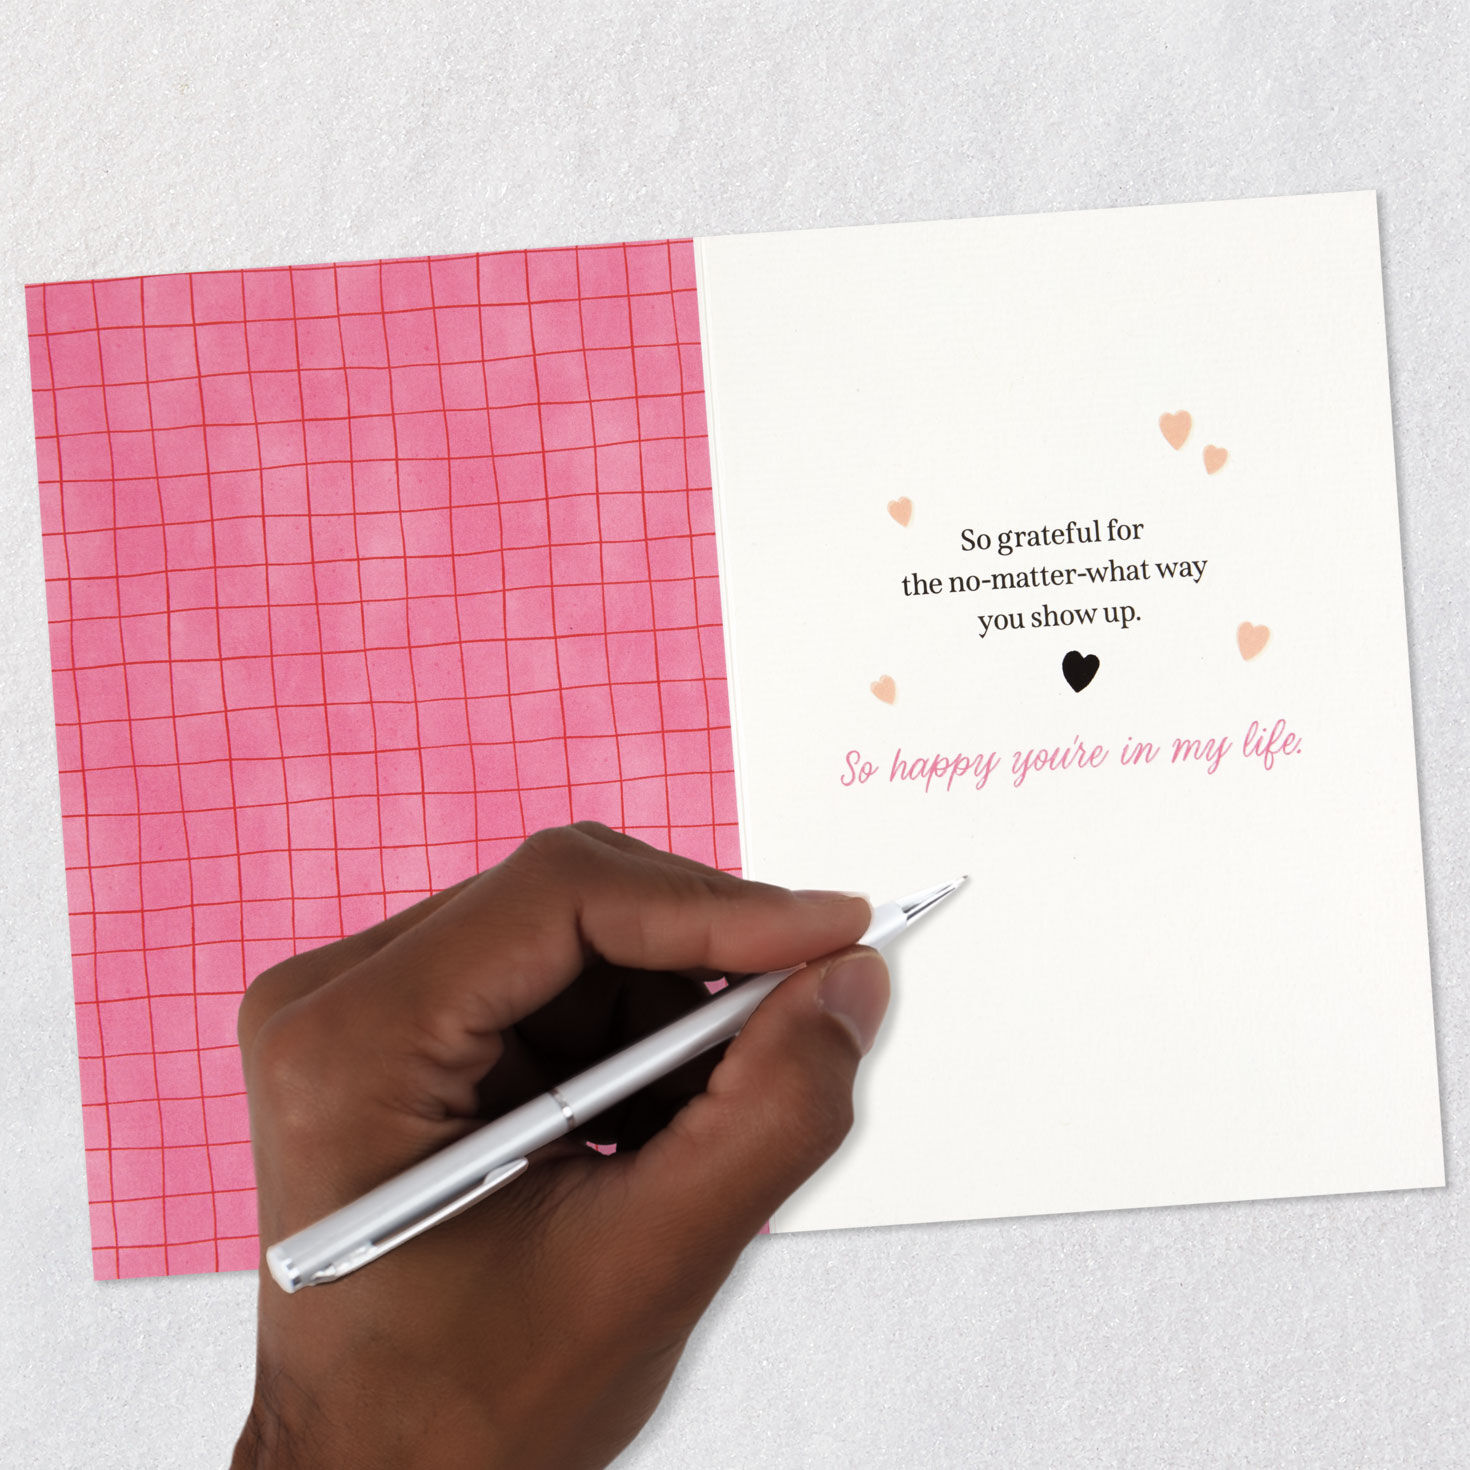 So grateful for
the no-matter-what way
you show up.
So happy you're in my life.